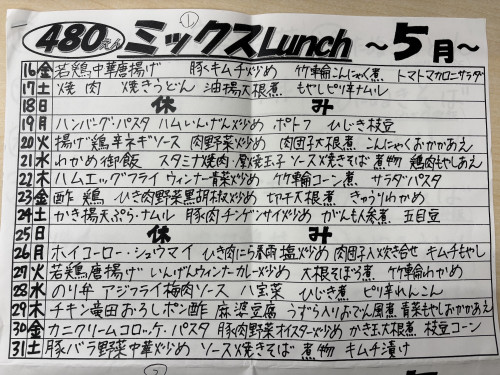 ①
480えん ミックスLunch ～5月～
16 金 若鶏中華唐揚げ 豚くキムチ炒め 竹輪こんにゃく煮 トマトマカロニサラダ
17 土 焼肉 焼きうどん 油揚大根煮 もやしピリ辛ナムル
18 日 休み
19 月 ハンバーグ・パスタ ハムいんげん炒め ポトフ ひじき枝豆
20 火 揚げ鶏辛ネギソース 肉野菜炒め 肉団子大根煮 こんにゃくおかかあえ
21 水 わかめ御飯 スタミナ焼肉・厚焼玉子 ソース焼きそば 煮物 鶏肉もやしあえ
22 木 ハムエッグフライ ウィンナー青菜炒め 竹輪コーン煮 サラダパスタ
23 金 酢鶏 ひき肉野菜黒胡椒炒め 切干大根煮 きゅうりわかめ
24 土 かき揚天ぷら・ナムル 豚肉チンゲンサイ炒め がんもん参煮 五目豆
25 日 休み
26 月 ホイコーロー・シュウマイ ひき肉にら春雨塩炒め 肉団子入炊き合せ キムチもやし
27 火 若鶏唐揚げ いんげんウィンナーカレー炒め 大根そぼろ煮 竹輪わかめ
28 水 のり弁 アジフライ梅肉ソース 八宝菜 ひじき煮 ピリ辛れんこん
29 木 チキン竜田おろしポン酢 麻婆豆腐 うずら入りおでん風煮 青菜もやしおかかあえ
30 金 カニクリームコロッケ・パスタ 豚肉野菜オイスター炒め かき玉大根煮 枝豆コーン
31 土 豚バラ野菜中華炒め ソース焼きそば 煮物 キムチ漬け